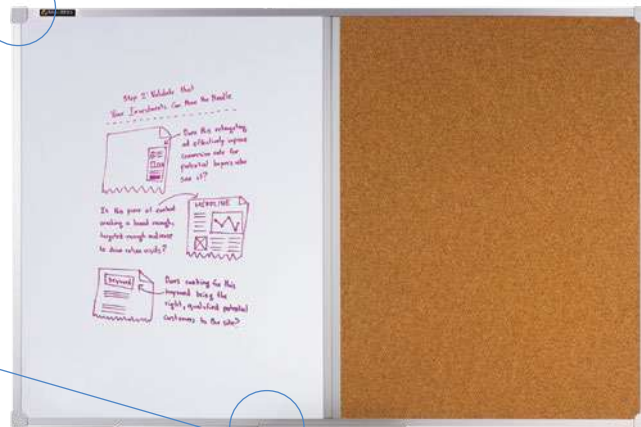 Step 2: Validate that
Your Investments Can Move the Needle
Does this retargeting
ad effectively improve
conversion rate for
potential buyers who
see it?
Is this piece of content
reaching a broad enough,
targeted enough audience
to drive return visits?
HEADLINE
keyword
Does ranking for this
keyword bring the
right, qualified potential
customers to the site?